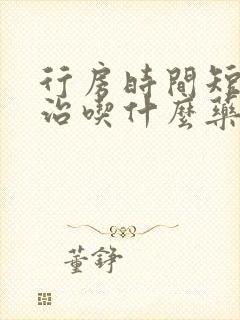 行房時間短
治喫什麼藥
董錚